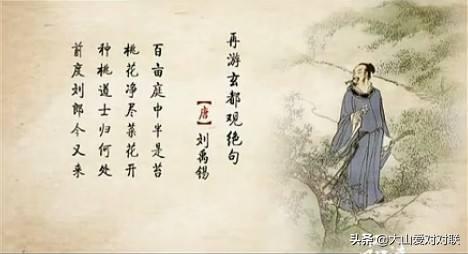 再游玄都观绝句
【唐】刘禹锡
百亩庭中半是苔
桃花净尽菜花开
种桃道士归何处
前度刘郎今又来
头条 @大山爱对对联